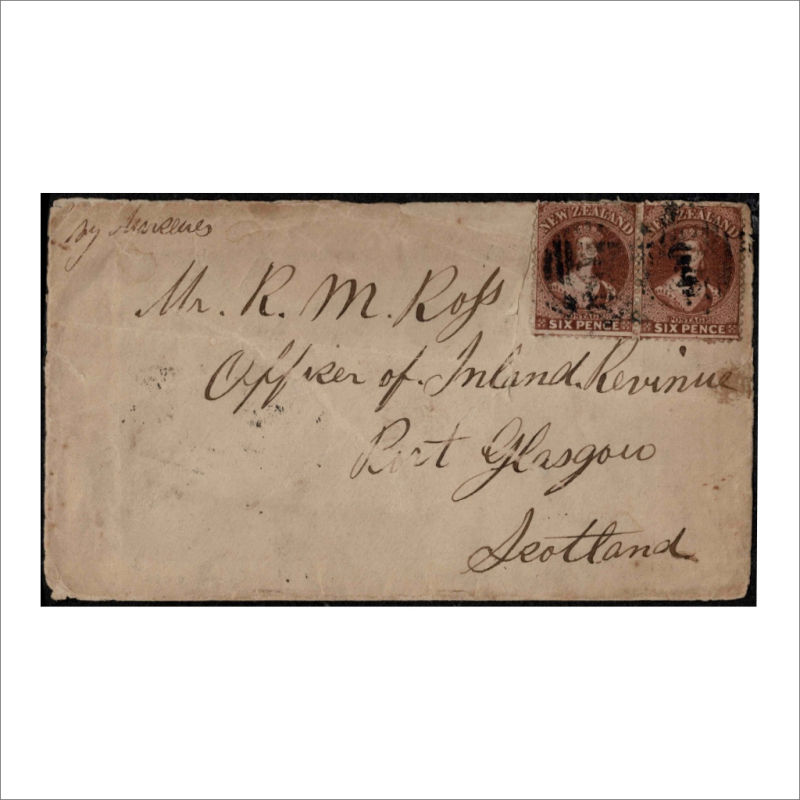 by
NEW ZEALAND
POSTAGE
SIX PENCE
NEW ZEALAND
POSTAGE
SIX PENCE
Mr. R. M. Ross
Officer of Inland Revinue
Port Glasgow
Scotland